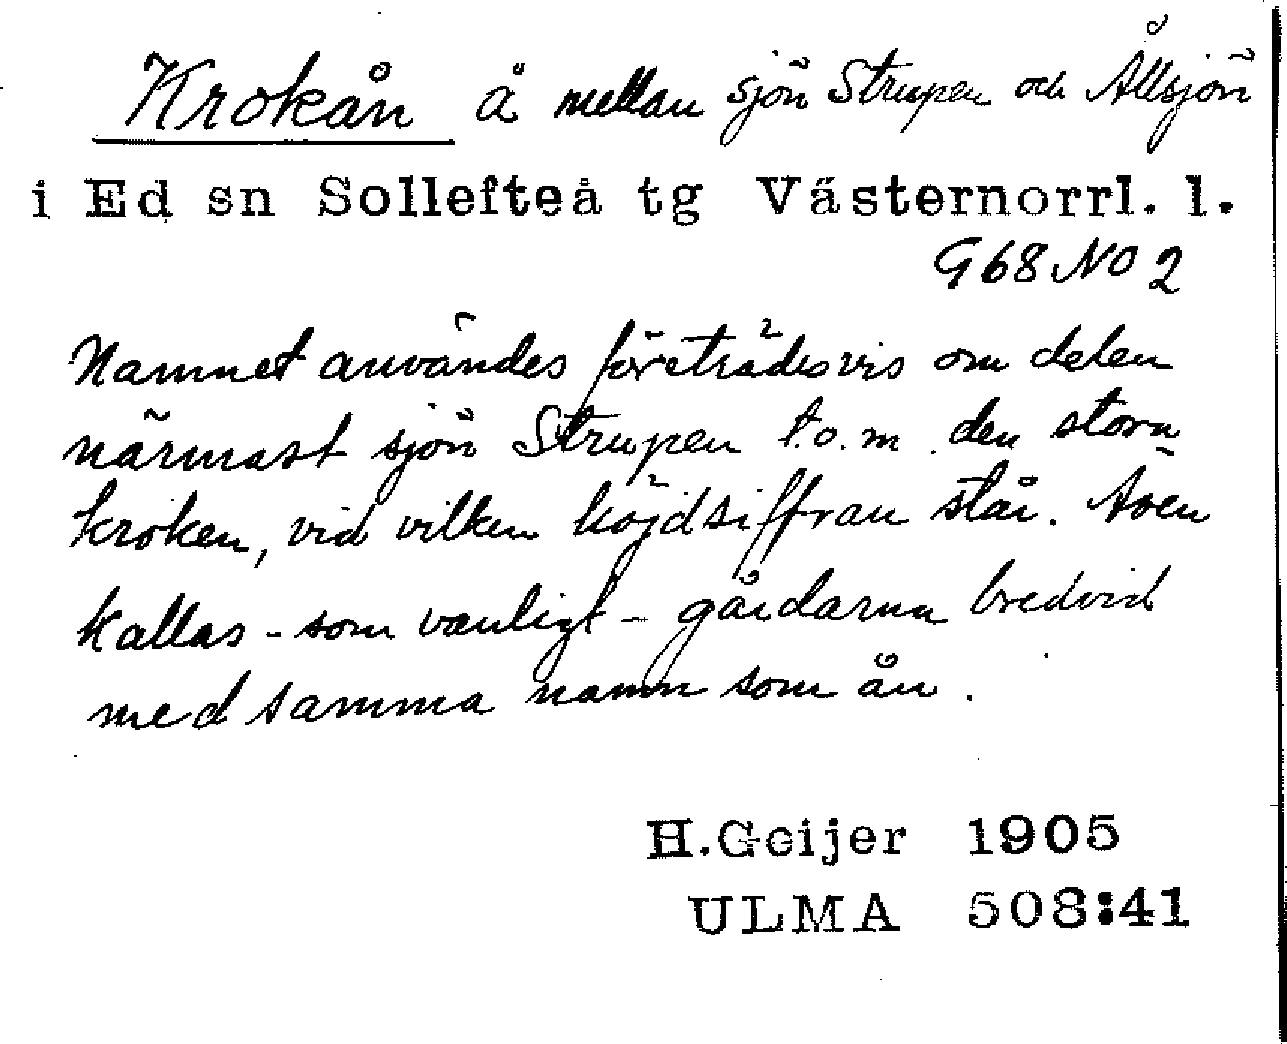 Krokån å mellan sjön Strupen och Ållsjön
i Ed sn Sollefteå tg Västernorrl. l.
G68NO2
Namnet användes företrädesvis om delen
närmast sjön Strupen t.o.m. den stora
kroken, vid vilken höjdsiffran står. Även
kallas - som vanligt - gårdarna bredvid
med samma namn som ån.
H.Geijer 1905
ULMA 508:41